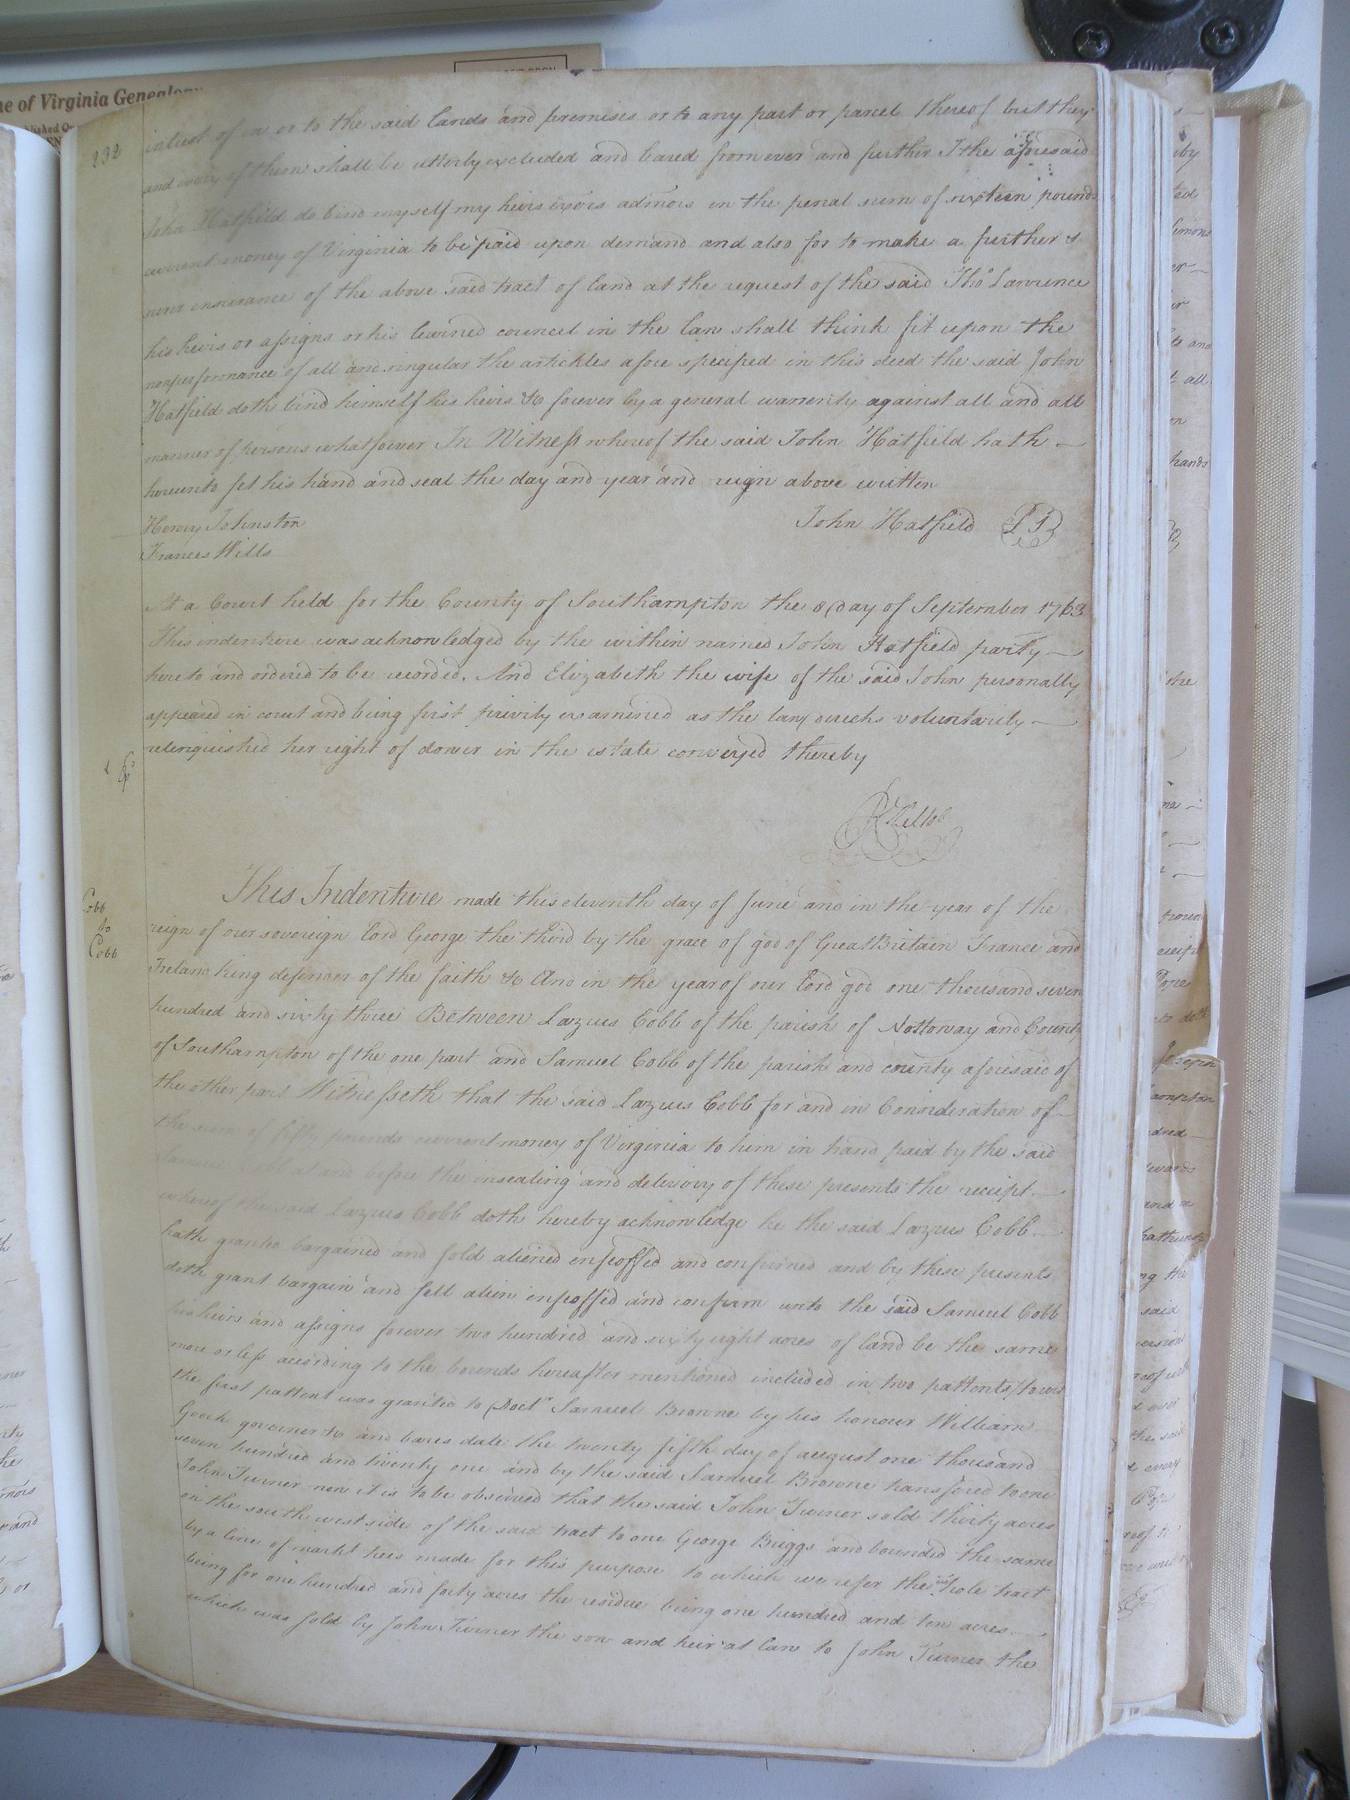 ne of Virginia Genealogy
232
interest of in or to the said lands and premises or to any part or parcel thereof but they
and every of them shall be utterly excluded and bared from ever and further I the aforesaid
John Hatfield do bind myself my heirs exors admors in the penal sum of sixteen pounds
current money of Virginia to be paid upon demand and also for to make a further &
surer ensurance of the above said tract of land at the request of the said Thos Lawrence
his heirs or assigns or his learned councel in the law shall think fit upon the
nonperformance of all and singular the artickles afore specified in this deed the said John
Hatfield doth bind himself his heirs &c forever by a general warrenty against all and all
manner of persons whatsoever In Witness whereof the said John Hatfield hath
hereunto set his hand and seal the day and year and reign above written
Henry Johnston
John Hatfield
Frances Wills
At a Court held for the County of Southampton the 8 day of September 1763
This indenture was acknowledged by the within named John Hatfield party
hereto and ordered to be recorded. And Elizabeth the wife of the said John personally
appeared in court and being first privily examined as the law directs voluntarily
relinquished her right of dower in the estate conveyed thereby
Cobb
to
Cobb
This Indenture made this eleventh day of June and in the year of the
reign of our sovereign Lord George the third by the grace of god of Great Britain France and
Ireland king defender of the faith &c And in the year of our Lord god one thousand seven
hundred and sixty three Between Lazrus Cobb of the parish of Nottoway and County
of Southampton of the one part and Samuel Cobb of the parish and county aforesaid of
the other part Witnesseth that the said Lazrus Cobb for and in Consideration of
the sum of fifty pounds current money of Virginia to him in hand paid by the said
Samuel Cobb at and before the insealing and delivery of these presents the receipt
whereof the said Lazrus Cobb doth hereby acknowledge he the said Lazrus Cobb
hath granted bargained and sold aliened enfeoffed and confirmed and by these presents
doth grant bargain and sell alien enfeoffed and confirm unto the said Samuel Cobb
his heirs and assigns forever two hundred and sixty eight acres of land be the same
more or less according to the bounds hereafter mentioned included in two pattents towit
the first pattent was granted to Doctr Samuel Browne by his honour William
Gooch governer &c and bares date the twenty fifth day of august one thousand
seven hundred and twenty one and by the said Samuel Browne transfered to one
John Turner now it is to be observed that the said John Turner sold thirty acres
on the south west side of the said tract to one George Briggs and bounded the same
by a line of markt trees made for this purpose to which we refer the whole tract
being for one hundred and forty acres the residue being one hundred and ten acres
which was sold by John Turner the son and heir at law to John Turner the